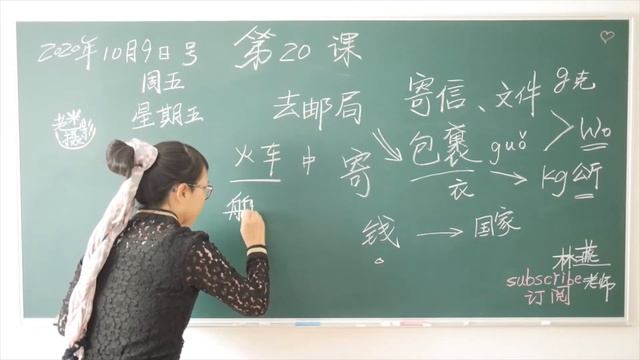 2020年10月9日号
第20课
周五
星期五
去邮局
寄信、文件
g克
火车
寄
包裹 guǒ
衣
kg公斤
钱 → 国家
林燕
老师
subscribe
订阅